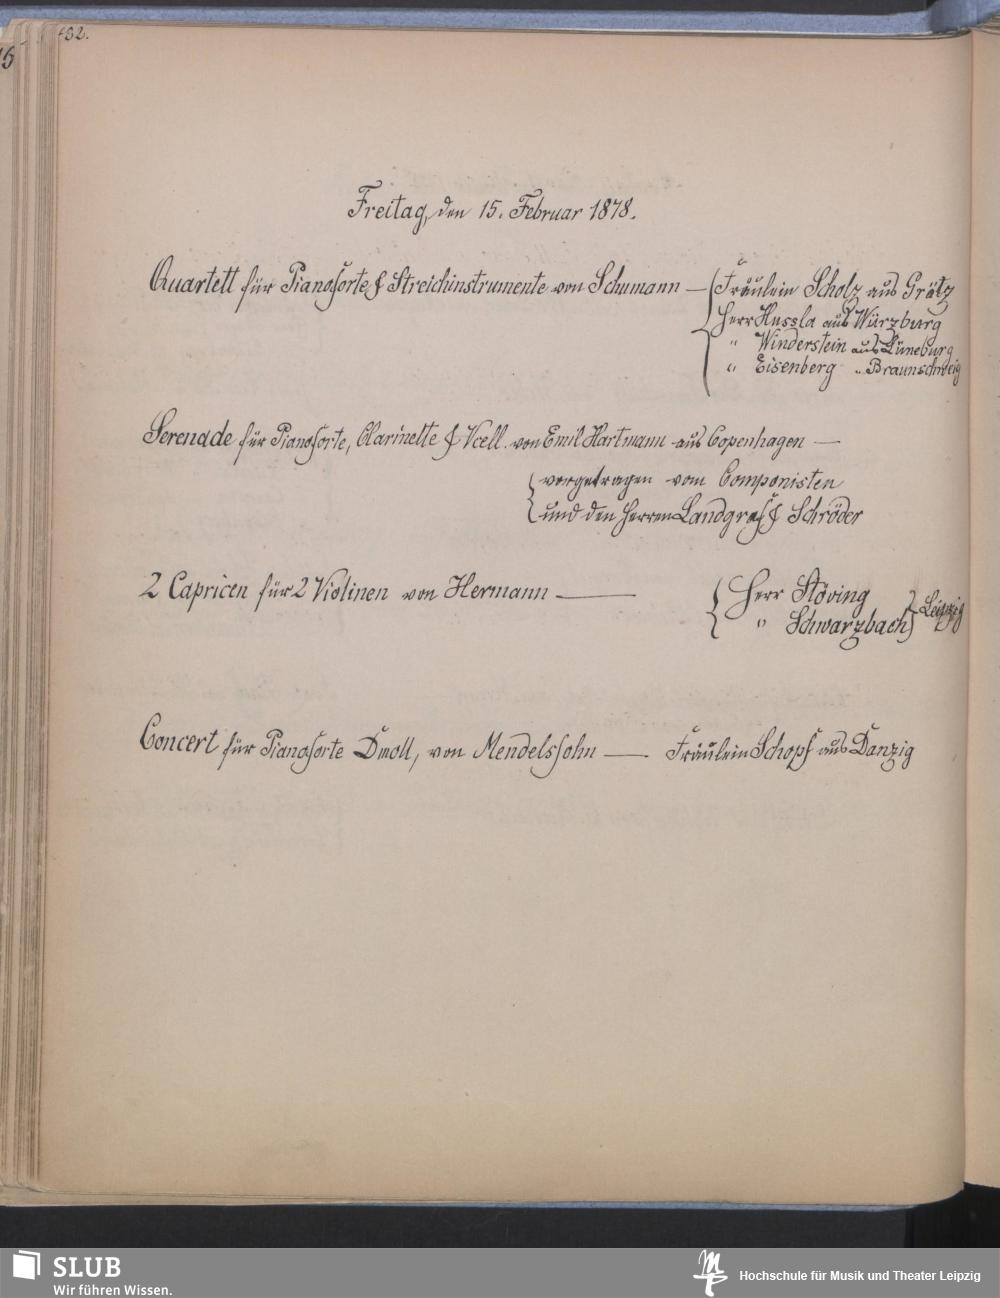 432.
Freitag, den 15. Februar 1878.
Quartett für Pianoforte & Streichinstrumente von Schumann — Fräulein Scholz aus Grätz
Herr Hussla aus Würzburg
" Winderstein aus Lüneburg
" Eisenberg " Braunschweig
Serenade für Pianoforte, Clarinette & Vcell. von Emil Hartmann aus Copenhagen —
vorgetragen vom Componisten
und den Herren Landgraf & Schröder
2 Capricen für 2 Violinen von Hermann — Herr Stöving
" Schwarzbach } Leipzig
Concert für Pianoforte Dmoll, von Mendelssohn — Fräulein Schopf aus Danzig
SLUB
Wir führen Wissen.
Hochschule für Musik und Theater Leipzig